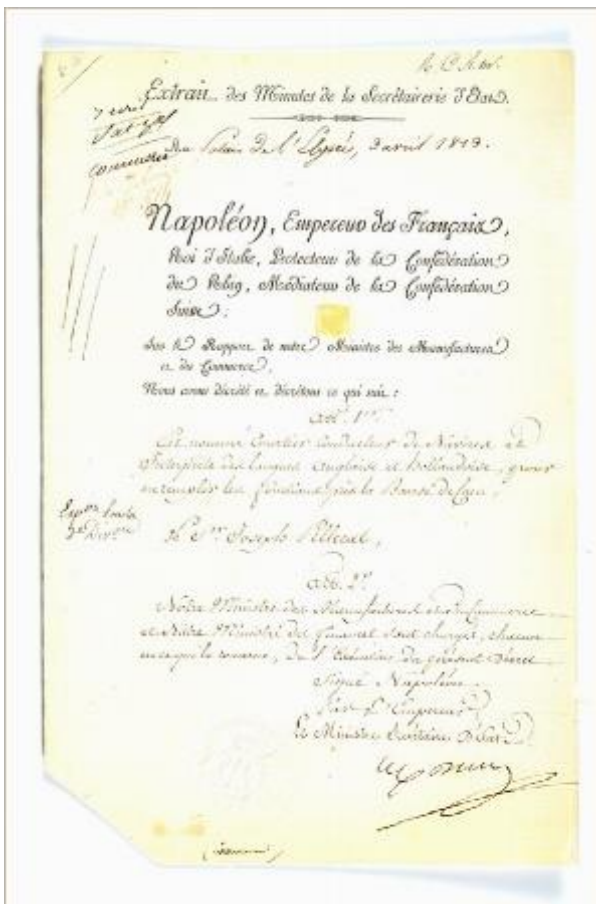 Extrait des Minutes de la Secrétairerie d'Etat.
Au Palais de l'Elysée, 3 avril 1813.
Napoléon, Empereur des Français,
Roi d'Italie, Protecteur de la Confédération
du Rhin, Médiateur de la Confédération
Suisse;
Sur le Rapport de notre Ministre des Manufactures
et du Commerce,
Nous avons décrété et décrétons ce qui suit:
Art. 1er.
Est nommé Courtier Conducteur de Navires et
Interprète des langues Anglaise et Hollandaise, pour
en remplir les fonctions près la Bourse de Caen,
Le Sr. Joseph
Art. 2.
Notre Ministre des Manufactures et du Commerce
et Notre Ministre des finances sont chargés, chacun
en ce qui le concerne, de l'Exécution du présent Décret.
Signé Napoléon.
Par l'Empereur
Le Ministre Secrétaire d'Etat